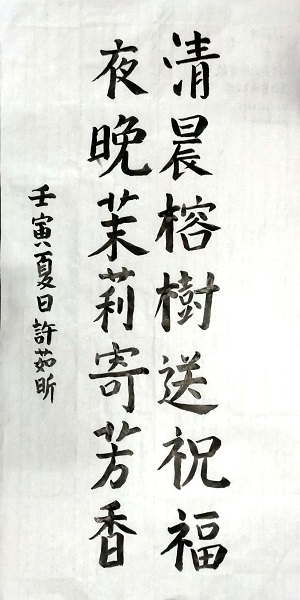 清晨榕樹送祝福
夜晚茉莉寄芳香
壬寅夏日許茹昕